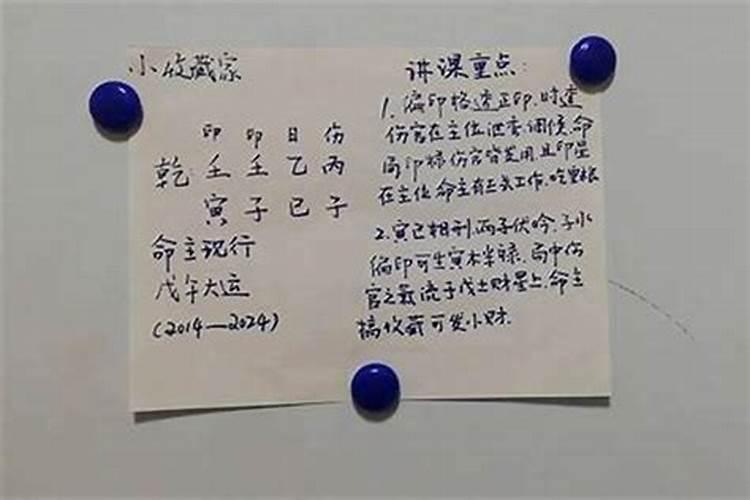 小收藏家
印 印 日 伤
乾: 壬 壬 乙 丙
寅 子 巳 子
命主现行
戊午大运
(2014—2024)
讲课重点:
1. 偏印格透正印.时透
伤官在主位泄秀.调候.命
局印 伤官皆 用.且印星
在主位.命主有正 工作.
2. 寅巳相刑.两子伏吟.子水
偏印可生寅木 禄.局中伤
官之 流于戊土财星上.命主
搞收藏可发小财.